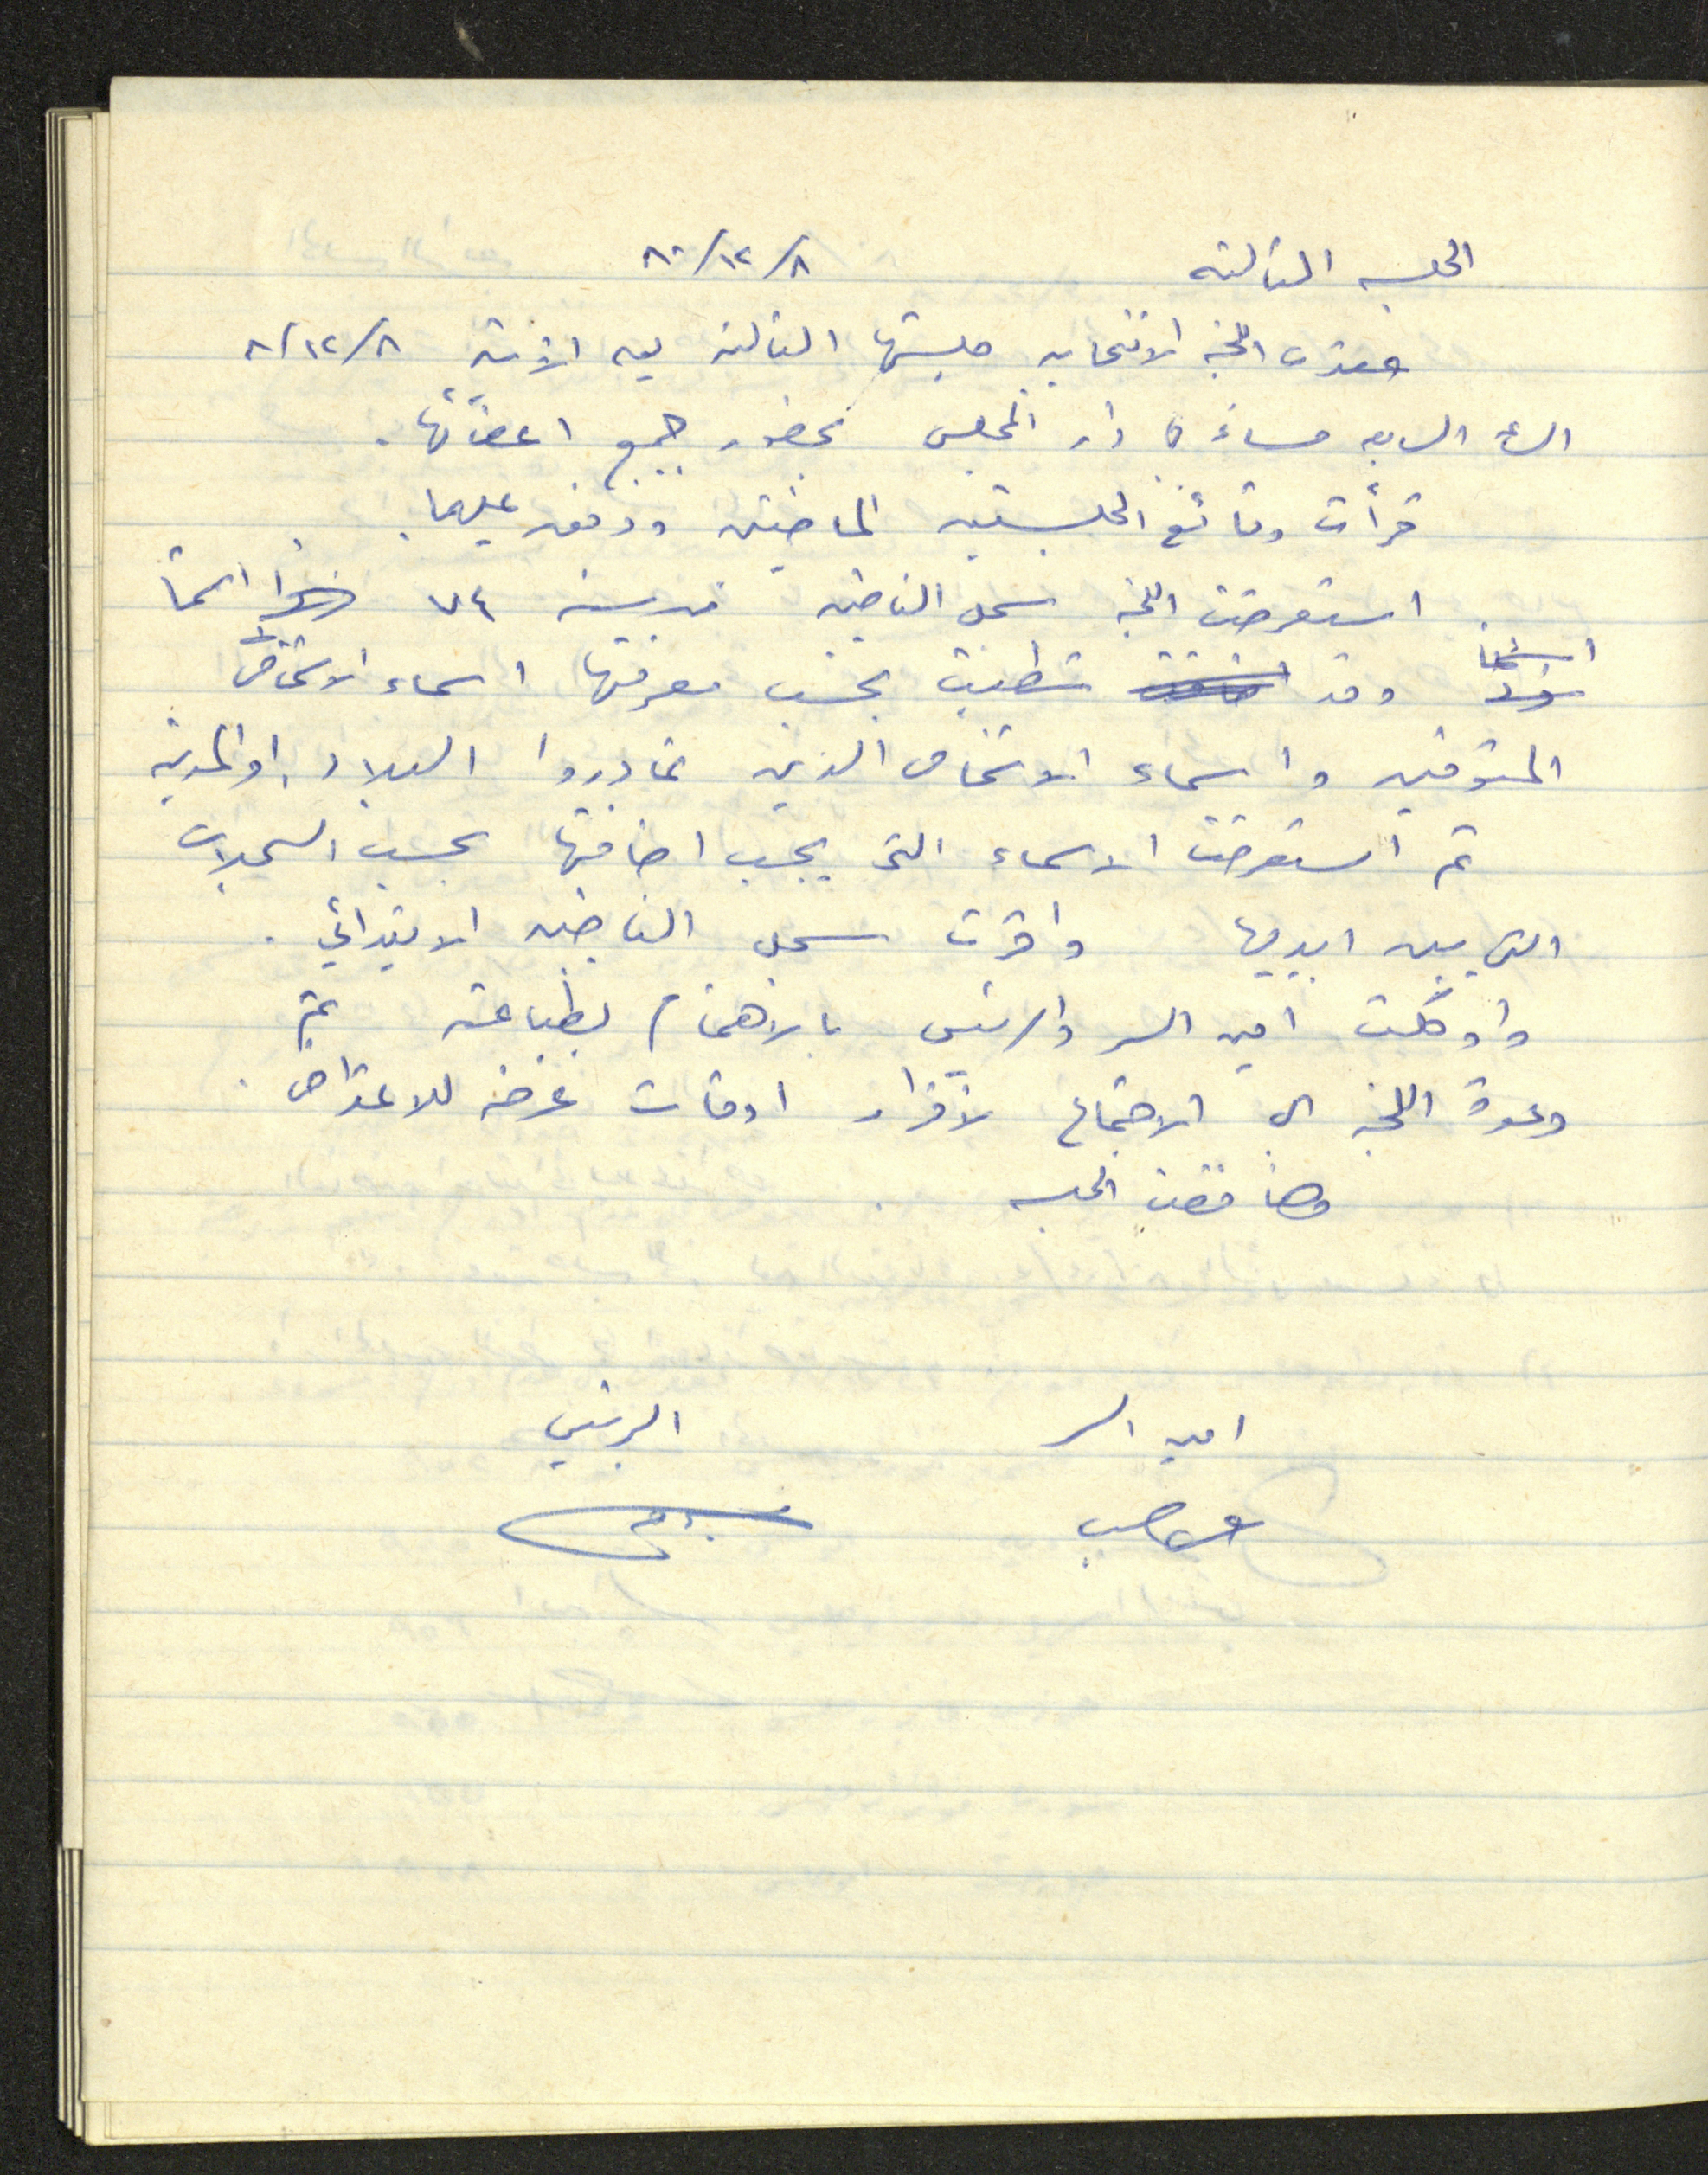 الجلسه الثالثه ٨٠/١٢/٨
عقدت اللجنه الانتخابيه جلستها الثالثه يوم الاثنين ٨/١٢/٨
الساعة السابعه مساءً في دار المجلس بحضور جميع اعضائها .
قرأت وقائع الجلستين الماضيتين ووفق عليهما .
استعرضت اللجنه سجل الناخبين لسنه ٧٤ اسماً
اسماً وقد شطبت بحسب معرفتها اسماء الاشخاص
المتوفين واسماء الاشخاص الذين غادروا البلاد او المدينه
ثم استعرضت الاسماء التي يجب اضافتها بحسب السجلات
التي بين ايديها واقرت سجل الناخبين الابتدائي .
واوكلت امين السر والرئيس بالاهتمام بطباعته ثم
دعوة اللجنه الى الاجتماع لاقرار اوقات عرضه للاعتراض .
وهنا فضت الجلسه
امين السر الرئيس